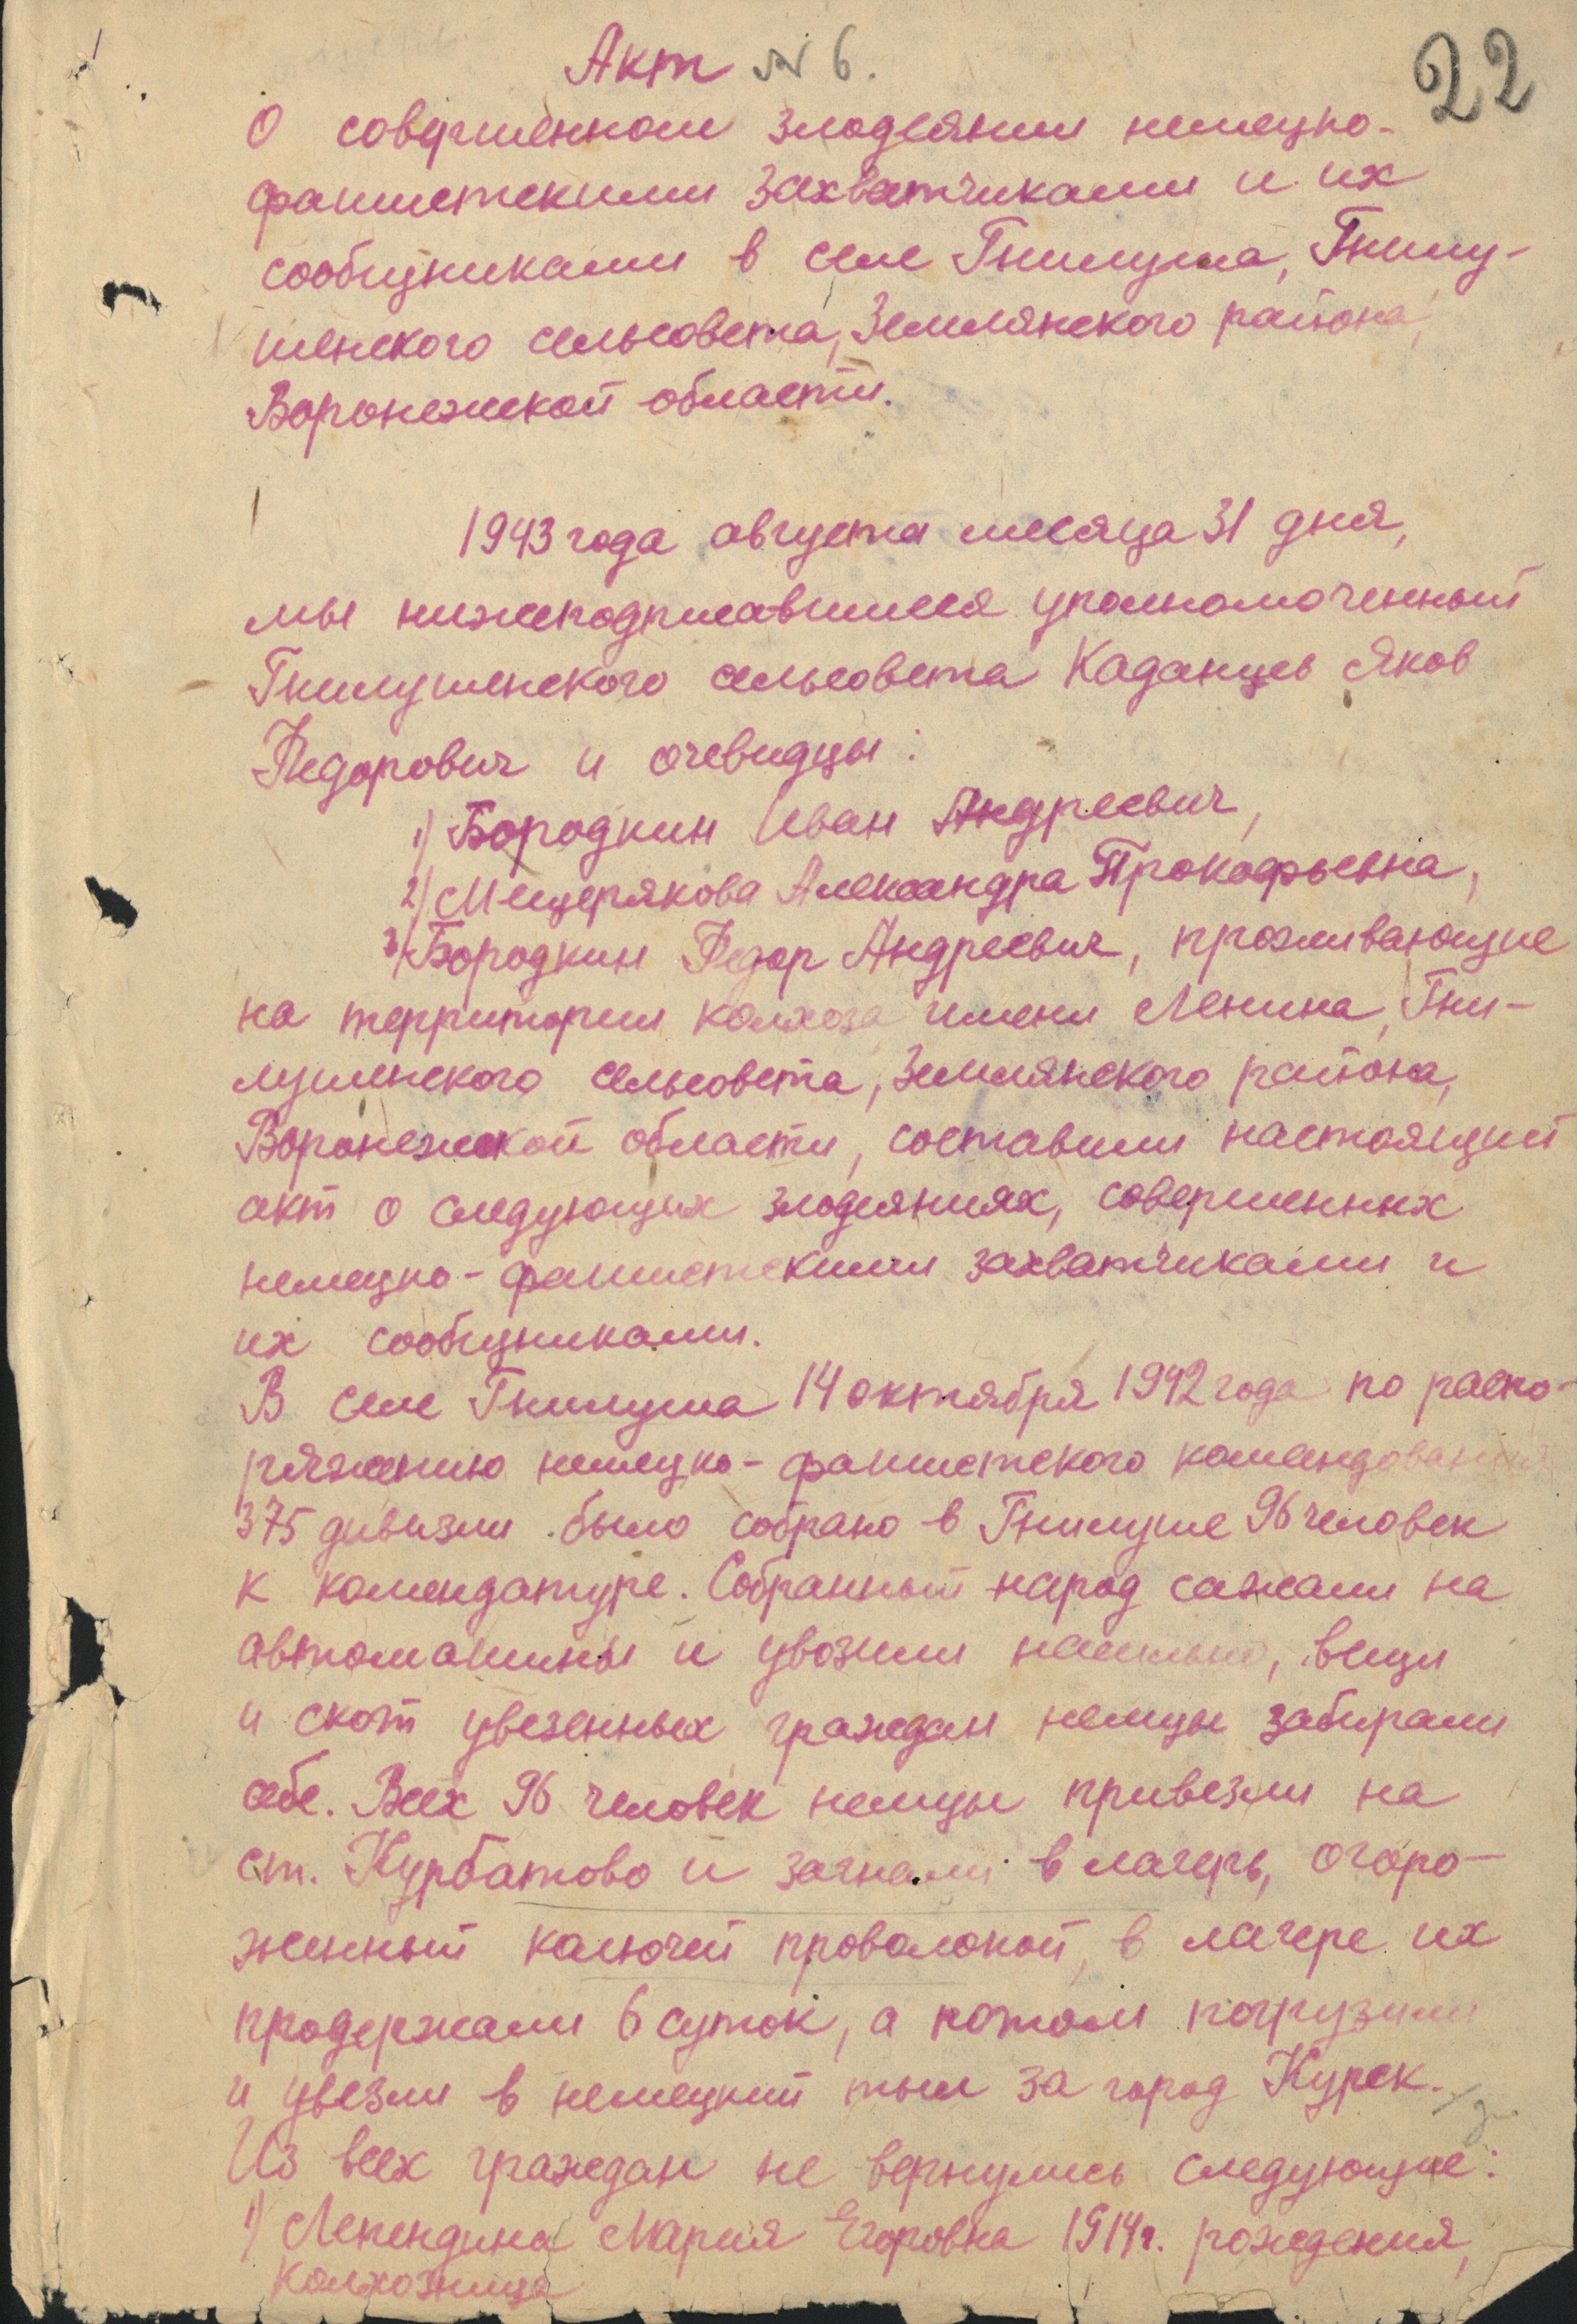 Акт № 6.
22
О совершенном злодеянии немецко-
фашистскими захватчиками и их
сообщниками в селе Гнилуша, Гнилу-
шенского сельсовета, Землянского района,
Воронежской области.
1943 года августа месяца 31 дня,
мы нижеподписавшиеся уполномоченный
Гнилушенского сельсовета Каданцев Яков
Федорович и очевидцы:
1) Бородкин Иван Андреевич,
2) Мещерякова Александра Прокофьевна,
3) Бородкин Федор Андреевич, проживающие
на территории колхоза имени Ленина, Гни-
лушенского сельсовета, Землянского района,
Воронежской области, составили настоящий
акт о следующих злодеяниях, совершенных
немецко-фашистскими захватчиками и
их сообщниками.
В селе Гнилуша 14 октября 1942 года по распо-
ряжению немецко-фашистского командования
375 дивизии было собрано в Гнилуше 96 человек
к комендатуре. Собранный народ сажали на
автомашины и увозили насильно, вещи
и скот увезенных граждан немцы забирали
себе. Всех 96 человек немцы привезли на
ст. Курбатово и загнали в лагерь, огоро-
женный колючей проволокой, в лагере их
продержали 6 суток, а потом погрузили
и увезли в немецкий тыл за город Курск.
Из всех граждан не вернулись следующие:
1) Лепендина Мария Егоровна 1914 г. рождения,
колхозница